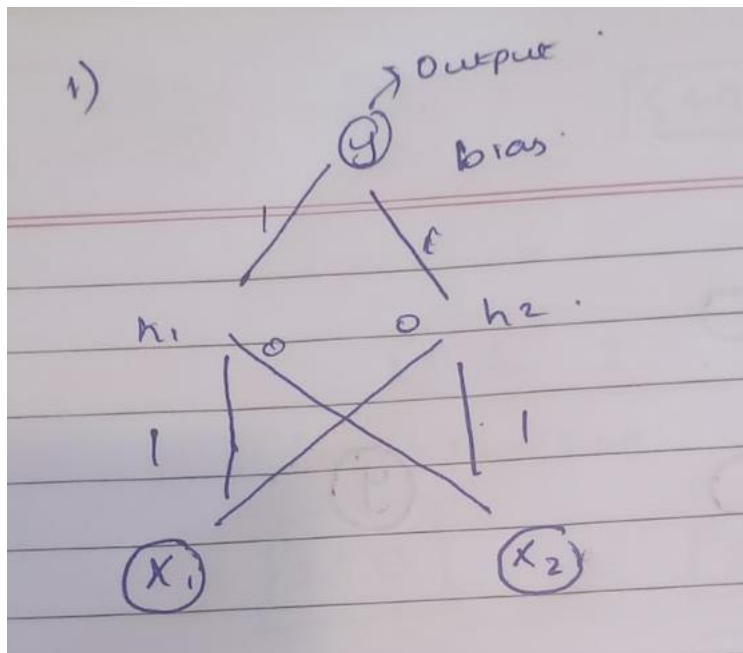 1)
Output
y
bias.
1
h1
0
0
h2
1
1
X1
X2